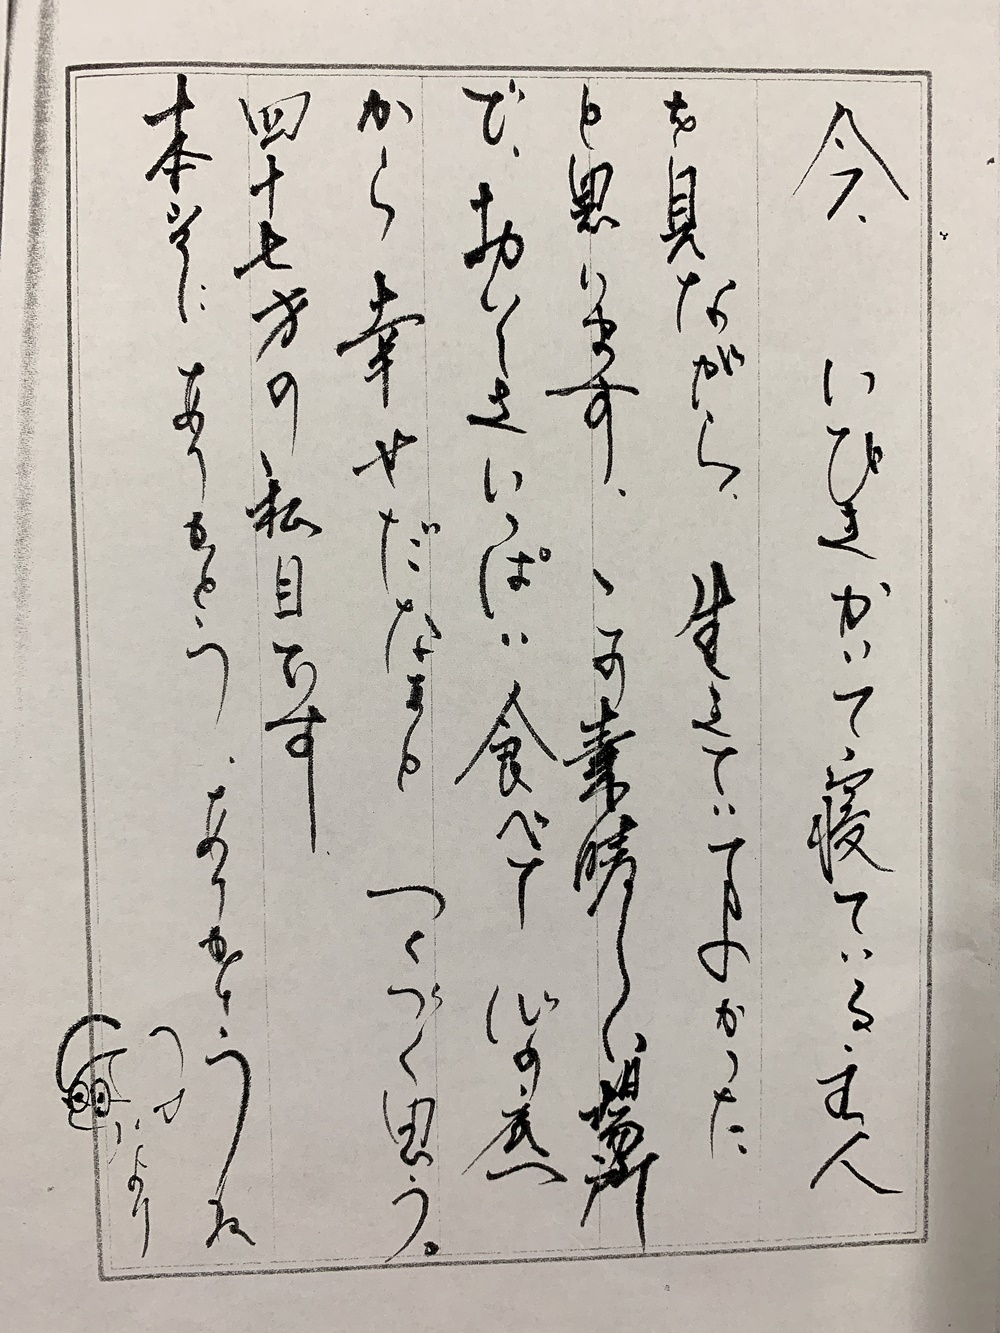 今、いびきかいて寝ている主人
を見ながら、生きていてよかった
と思います、この素晴しい場所
で、おいしさいっぱい食べて心の底
から幸せだなぁとつくづく思う。
四十七才の私目です
本当にありがとう、ありがとうね
より